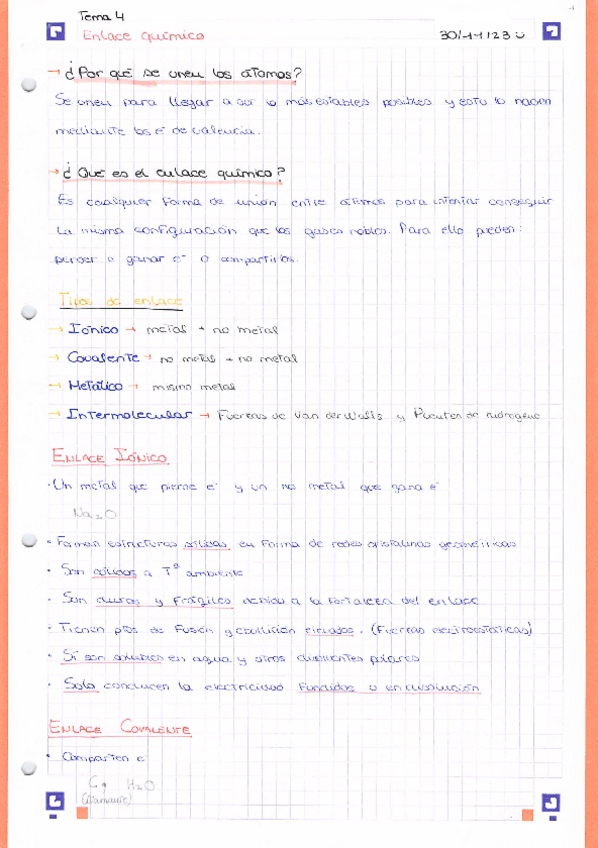 Tema 4
Enlace químico 30/11/23
→ ¿Por qué se unen los átomos?
Se unen para llegar a ser lo más estables posibles y esto lo hacen
mediante los e⁻ de valencia.
→ ¿Qué es el enlace químico?
Es cualquier forma de unión entre átomos para intentar conseguir
la misma configuración que los gases nobles. Para ello pueden:
perder o ganar e⁻ o compartirlos.
Tipos de enlace
→ Iónico → metal + no metal
→ Covalente → no metal + no metal
→ Metálico → mismo metal
→ Intermolecular → Fuerzas de Van der Walls y Puentes de hidrógeno
ENLACE IÓNICO
· Un metal que pierde e⁻ y un no metal que gana e⁻
Na₂O
· Forman estructuras sólidas en forma de redes cristalinas geométricas
· Son sólidos a Tª ambiente
· Son duros y frágiles debido a la fortaleza del enlace
· Tienen ptos de fusión y ebullición elevados. (Fuerzas electroestáticas)
· Sí son solubles en agua y otros disolventes polares
· Solo conducen la electricidad fundidos o en disolución
ENLACE COVALENTE
· Comparten e⁻
C, H₂O
(diamante)